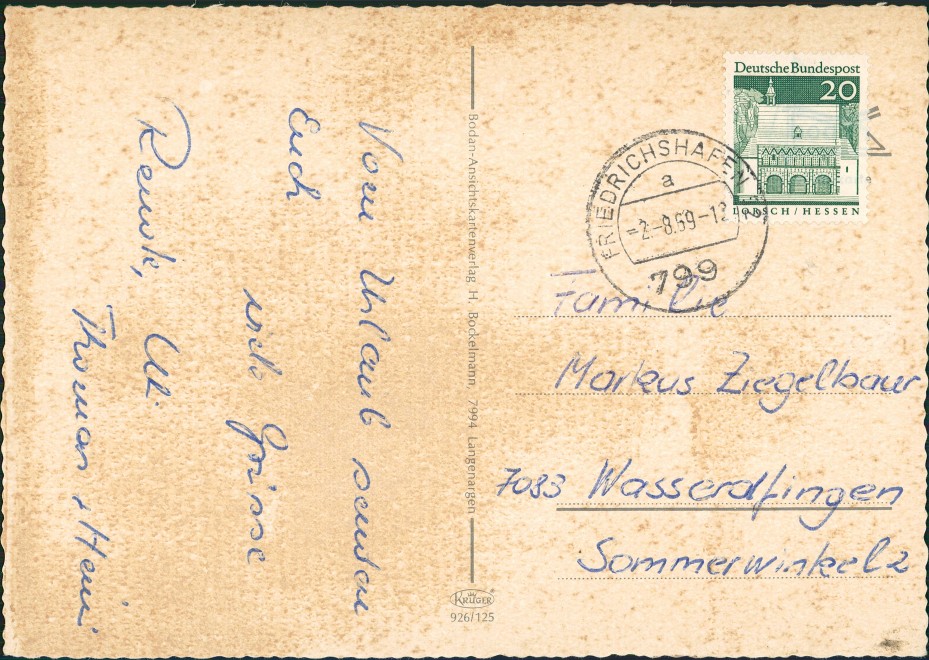 Vom Urlaub senden
Euch
viele Grüsse
Renate, Uli
Thomas + Heini
Bodan-Ansichtskartenverlag H. Bockelmann 7994 Langenargen
KRÜGER
926/125
Deutsche Bundespost
20
LORSCH/HESSEN
FRIEDRICHSHAFEN
a
-2.-8.69-12
799
Familie
Markus Ziegelbaur
7083 Wasseralfingen
Sommerwinkel 2